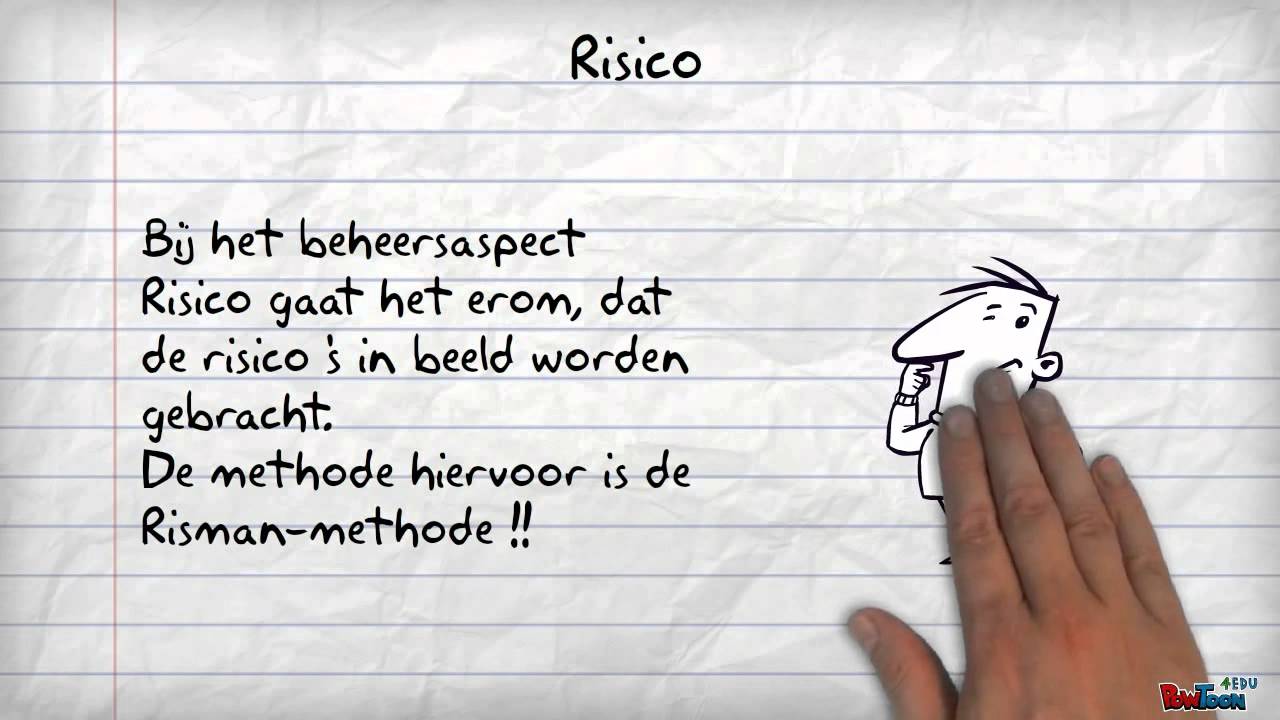 Risico
Bij het beheersaspect
Risico gaat het erom, dat
de risico 's in beeld worden
gebracht.
De methode hiervoor is de
Risman-methode !!
4EDU
POWTOON